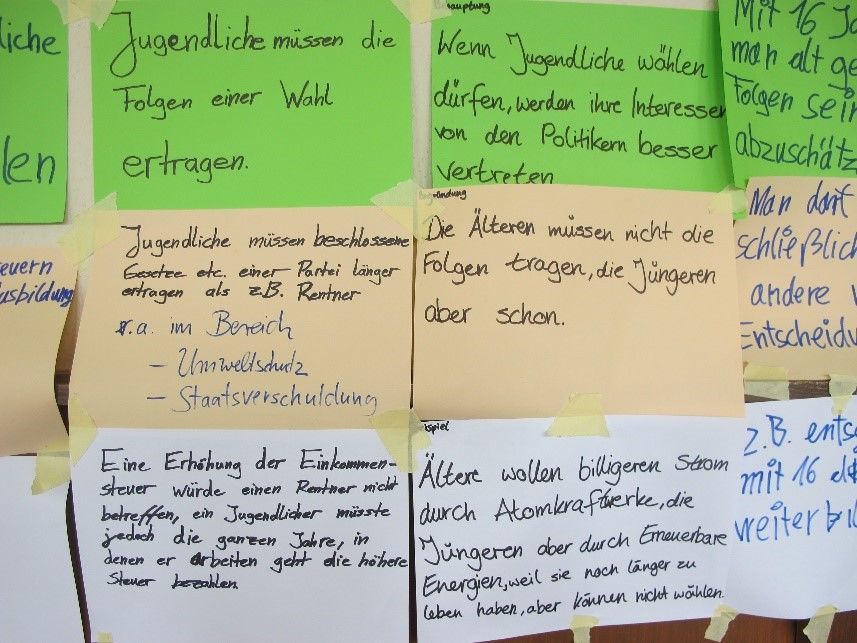 liche
len
euern
usbildung
Jugendliche müssen die
Folgen einer Wahl
ertragen.
Jugendliche müssen beschlossene
Gesetze etc. einer Partei länger
ertragen als z.B. Rentner
v.a. im Bereich
– Umweltschutz
– Staatsverschuldung
Eine Erhöhung der Einkommen-
steuer würde einen Rentner nicht
betreffen, ein Jugendlicher müsste
jedoch die ganzen Jahre, in
denen er arbeiten geht die höhere
Steuer bezahlen.
hauptung
Wenn Jugendliche wählen
dürfen, werden ihre Interessen
von den Politikern besser
vertreten
gründung
Die Älteren müssen nicht die
Folgen tragen, die Jüngeren
aber schon.
spiel
Ältere wollen billigeren Strom
durch Atomkraftwerke, die
Jüngeren aber durch Erneuerbare
Energien, weil sie noch länger zu
leben haben, aber können nicht wählen.
Mit 16 Ja
man alt ge
Folgen sein
abzuschätz
Man darf
schließlich
andere
Entscheidu
z.B. entsc
mit 16
weiterbil